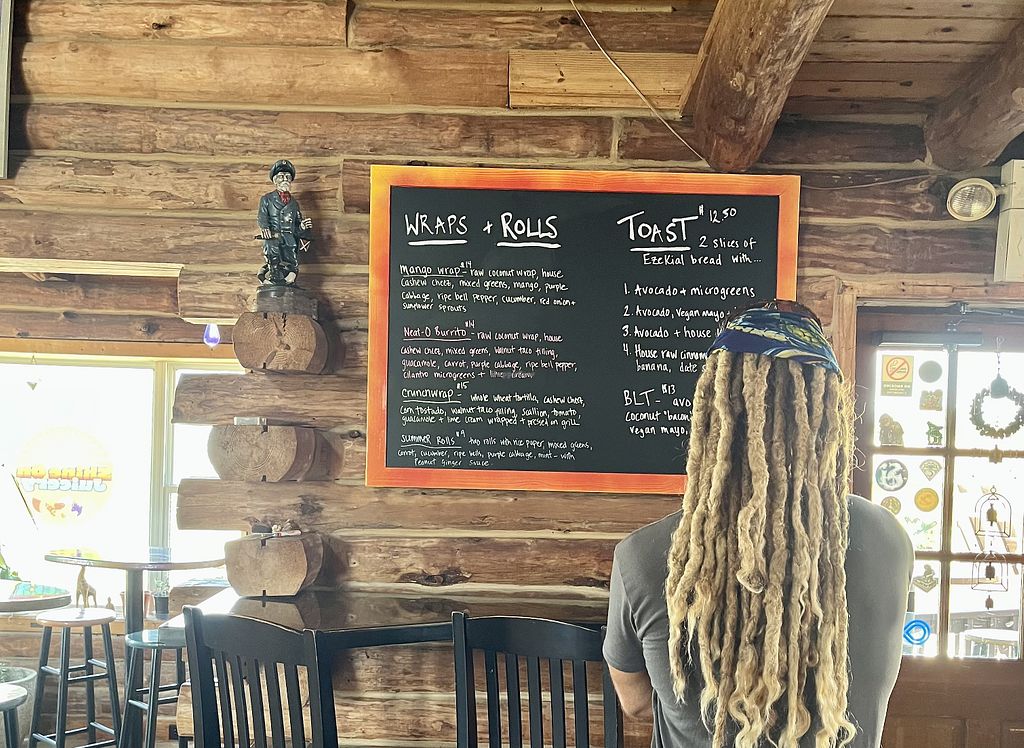 WRAPS + ROLLS
Mango wrap $14 - raw coconut wrap, house
cashew cheez, mixed greens, mango, purple
cabbage, ripe bell pepper, cucumber, red onion +
sunflower sprouts
Neat-O Burrito $14 - raw coconut wrap, house
cashew cheez, mixed greens, walnut taco filling,
guacamole, carrot, purple cabbage, ripe bell pepper,
cilantro microgreens + lime cream
Crunchwrap - $15 whole wheat tortilla, cashew cheez,
corn tostado, walnut taco filling, scallion, tomato,
guacamole + lime cream wrapped + pressed on grill
Summer Rolls $9 two rolls with rice paper, mixed greens,
carrot, cucumber, ripe bells, purple cabbage, mint - with
Peanut Ginger Sauce.
TOAST $12.50
2 slices of
Ezekial bread with...
1. Avocado + microgreens
2. Avocado, vegan mayo
3. Avocado + house
4. House raw
banana, date
BLT - $13
coconut "bacon
vegan mayo,